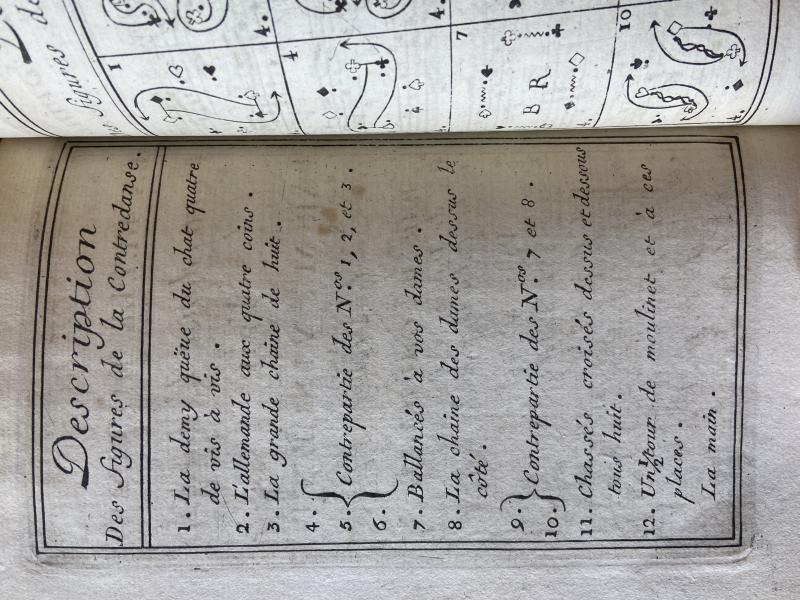 Description
Des figures de la Contredanse.
1. La demy quëue du chat quatre
de vis à vis.
2. L'allemande aux quatre coins.
3. La grande chaine de huit.
4.
5. Contrepartie des N.os 1, 2, et 3.
6.
7. Ballancés à vos dames.
8. La chaine des dames dessus le
côté.
9.
Contrepartie des N.os 7 et 8.
10.
11. Chassés croisés dessus et dessous
tous huit.
12. Un ½ tour de moulinet et à ces
places.
La main.
figures
de
1
4.
4
4.
7
B R
10